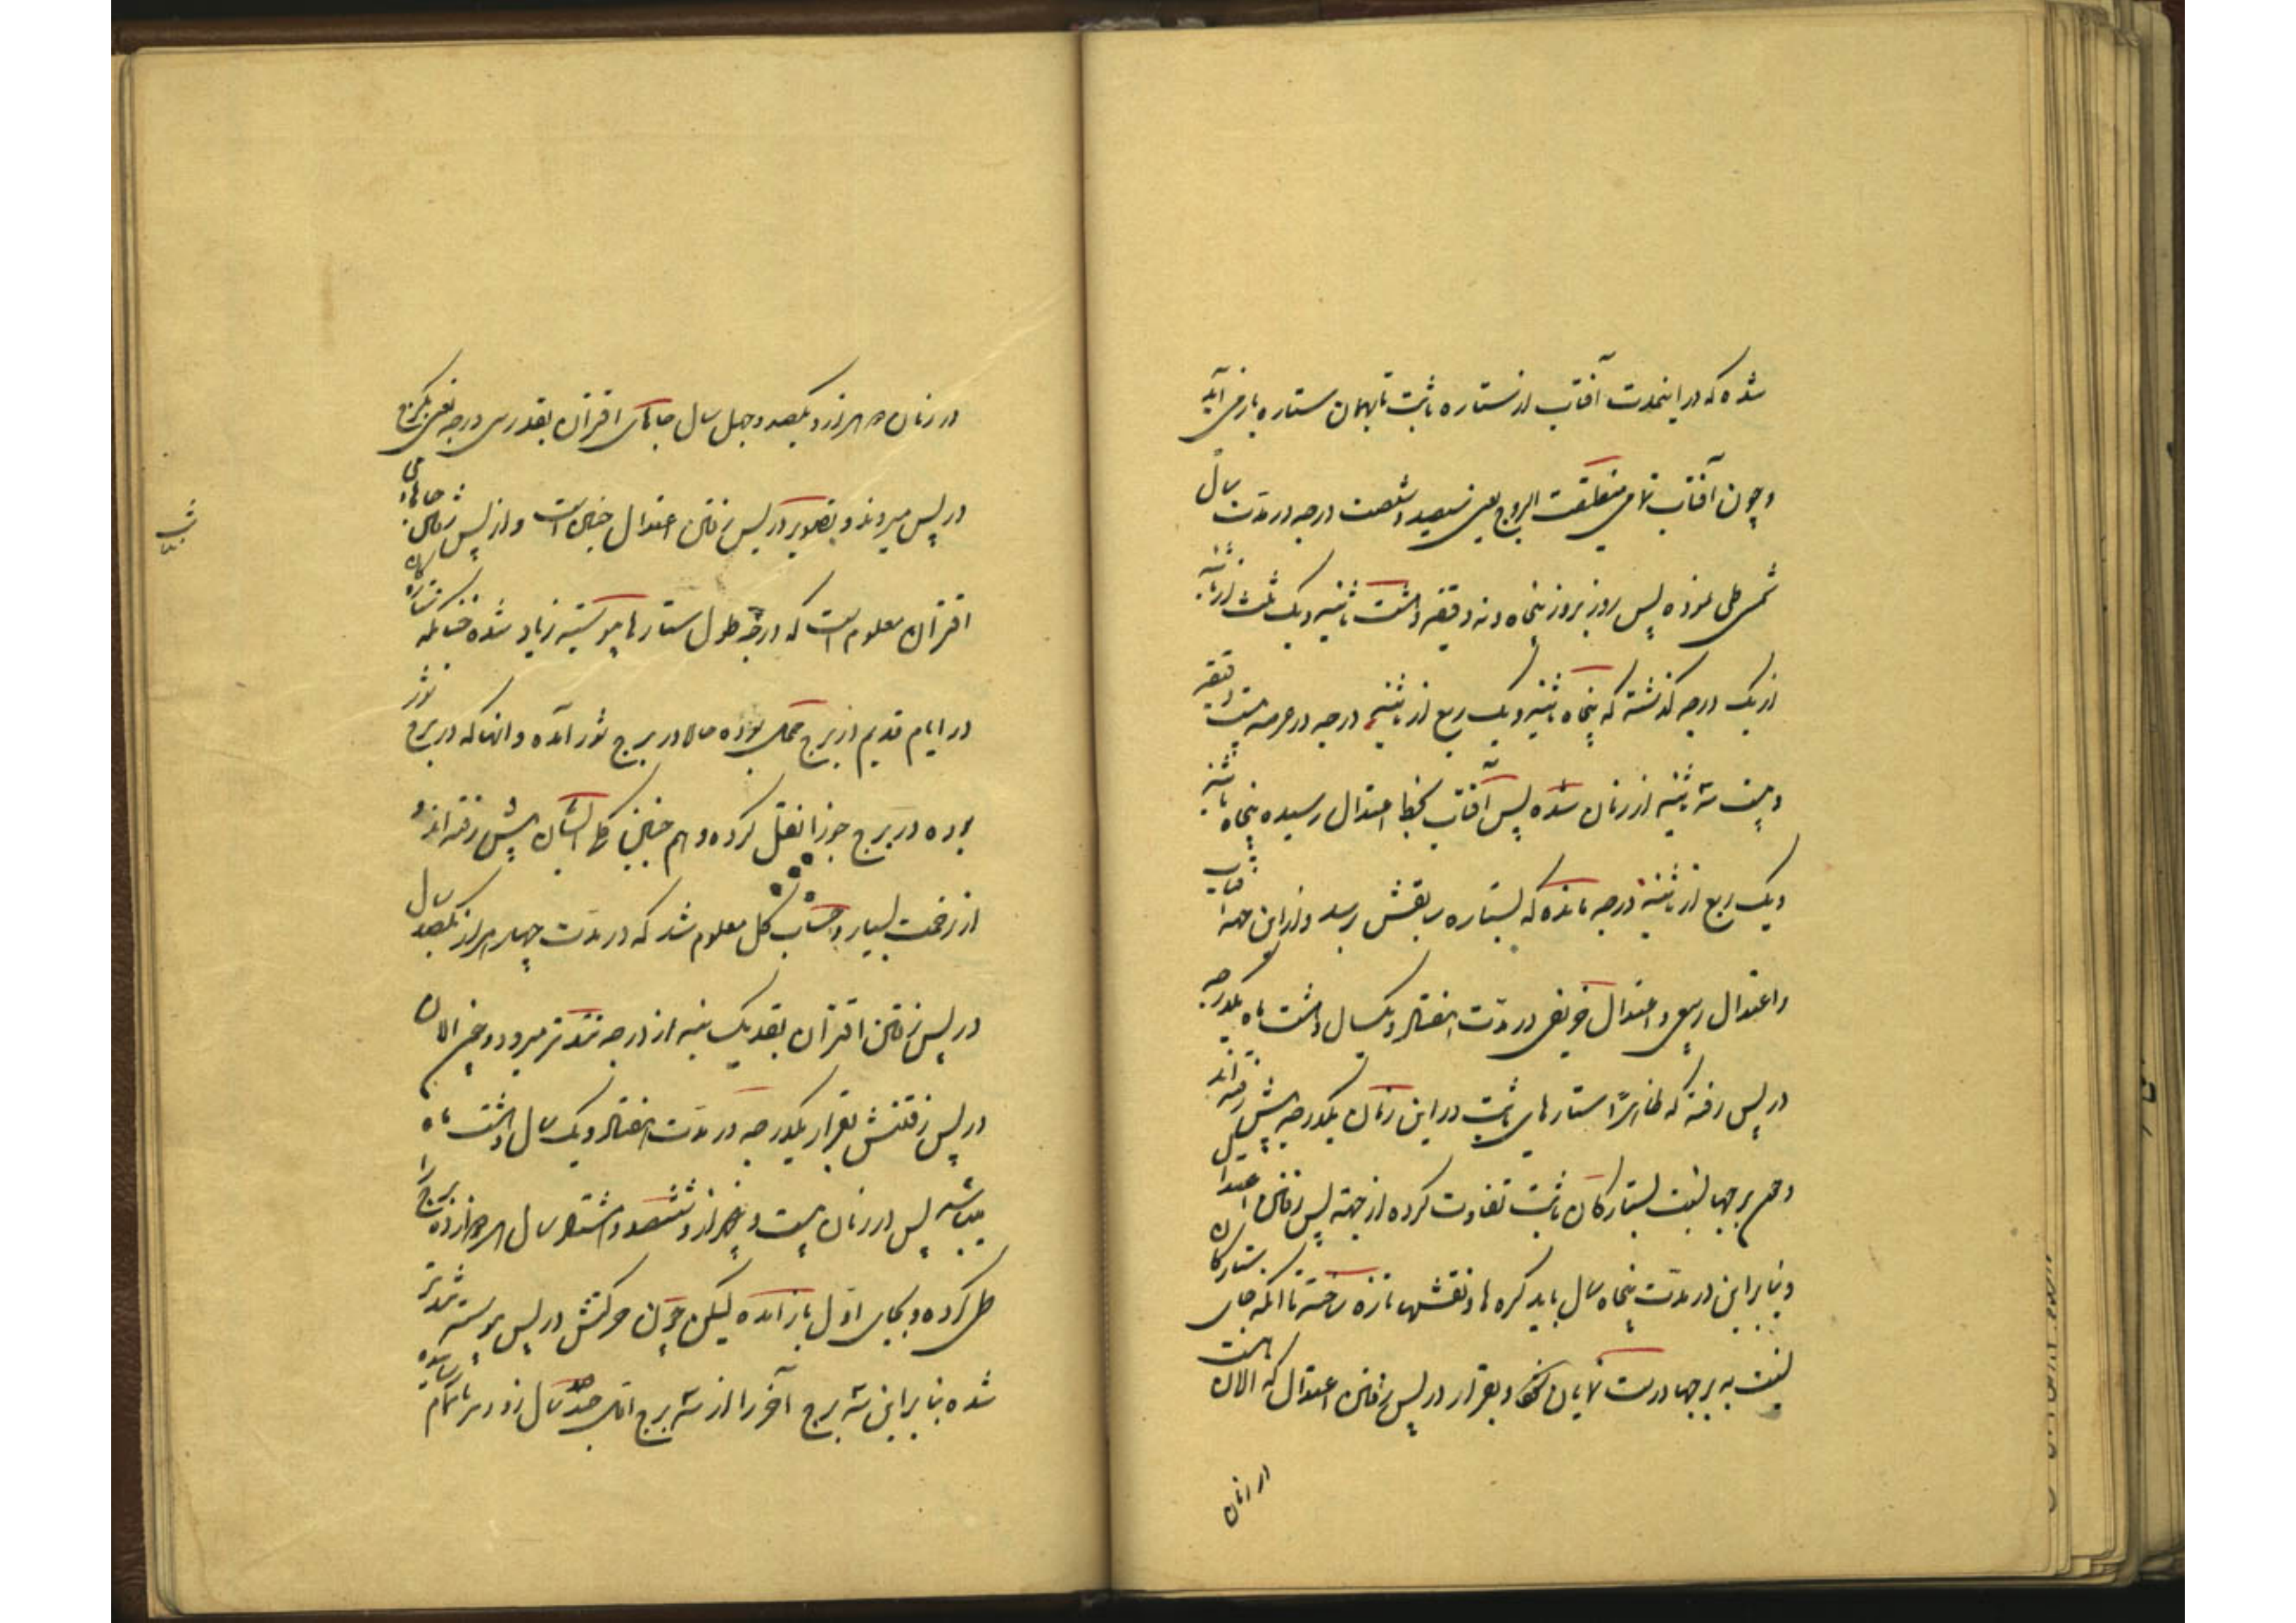 شده که در اینمدت آفتاب از ستاره ثابت تا بهمان ستاره باز می آید
و چون آفتاب تمامی منطقة البروج یعنی سیصد و شصت درجه در مدت سال
شمسی طی نموده پس روز بروز پنجاه و نه دقیقه و هشت ثانیه و یک ثلث از ثانیه
از یک درجه گذشته که پنجاه ثانیه و یک ربع از ثانیه درجه در عرصه بیست دقیقه
و بیست ثانیه از زمان شده پس آفتاب بخط اعتدال رسیده پنجاه ثانیه
و یک ربع از ثانیه درجه مانده که بستاره سابقش برسد و از این جهة آفتاب
و اعتدال ربیعی و اعتدال خریفی در مدت هفتاد و یکسال و هشت ماه یکدرجه
در پس رفته که ظاهرًا ستارهای ثابت در این زمان یکدرجه پیش رفته اند
و هم برجها نسبت بستارکان ثابت تفاوت کرده از جهة پس رفتن اعتدال
و بنابراین در مدت پنجاه سال باید کره ها و نقشهاء تازه ساخته تا آنکه جای ستارکان
نسبت به برجها درست نمایان و بقرار در پس رفتن اعتدال که الان است
از زمان
در زمان دو هزار و یکصد و چهل سال جاهای اقتران بقدر سی درجه یعنی یکبرج
در پس میروند و تصویر در پس رفتن اعتدال چنین است و از پس رفتن جاهای
اقتران معلوم است که درجه طول ستارها پیوسته زیاد شده چنانکه ستارگان
در ایام قدیم از برج حمل بوده حالا در برج ثور آمده و آنها که در برج ثور
بوده در برج جوزا نقل کرده و هم چنین کل ایشان پیش رفته اند و
از زحمت بسیار و حساب کل معلوم شد که در مدت چهار هزار یکصد سال
در پس رفتن اقتران بقدر یک ثانیه از درجه تندتر میرود و چنین الان
در پس رفتنش بقرار یکدرجه در مدت هفتاد و یک سال و هشت ماه
میباشد پس در زمان بیست و پنجهزار و ششصد و هشتاد سال هر دوازده برج را
طی کرده و بجای اول باز آمده لیکن چون حرکتش در پس پیوسته تندتر
شده بنابراین سه برج آخر را از سه برج اول چند سال زودتر تمام رسانیده